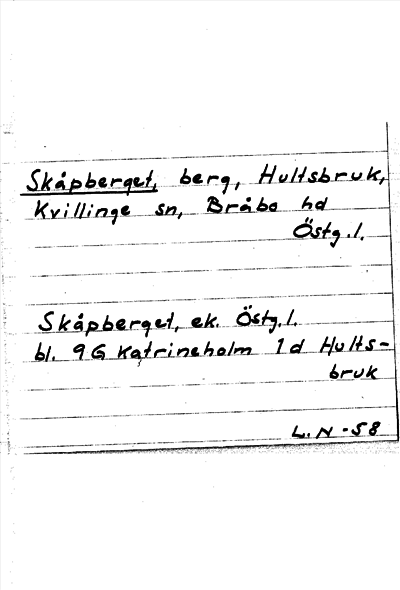 Skåpberget, berg, Hultsbruk,
Kvillinge sn, Bråbo hd
Östg.l.
Skåpberget, ek. Östg.l.
bl. 9G Katrineholm 1d Hults-
bruk
L.N-58